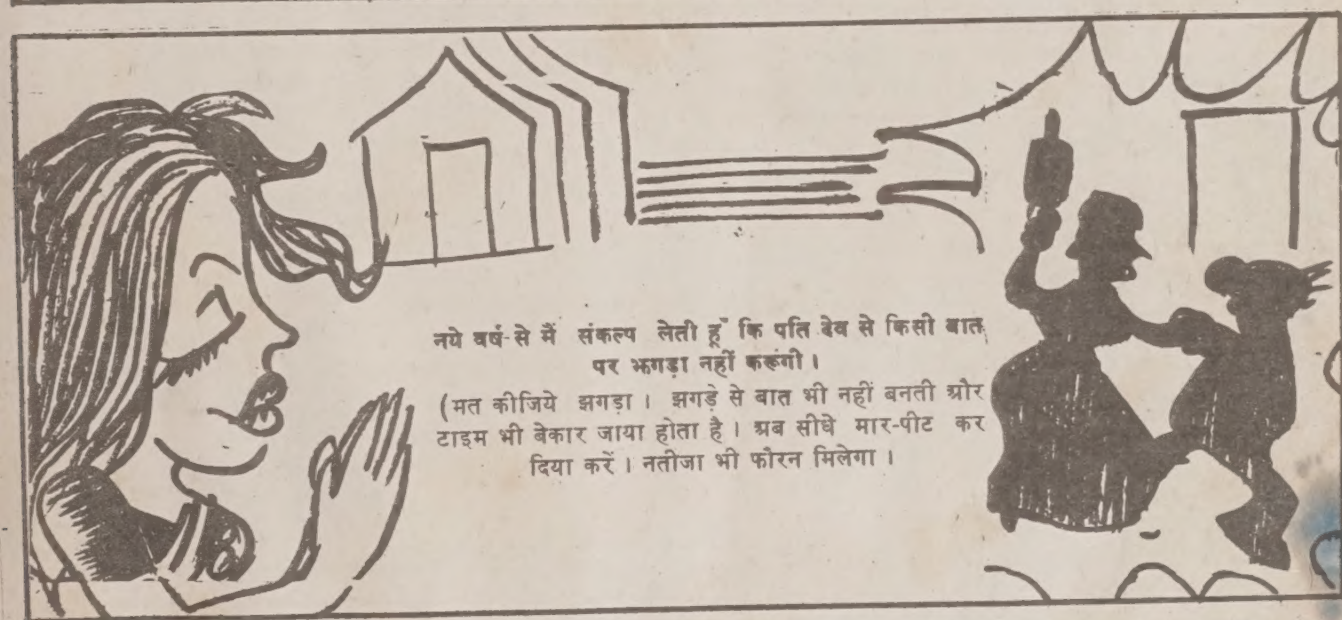 नये वर्ष से मैं संकल्प लेती हूँ कि पति देव से किसी बात
पर झगड़ा नहीं करूंगी ।
(मत कीजिये झगड़ा । झगड़े से बात भी नहीं बनती और
टाइम भी बेकार जाया होता है । अब सीधे मार-पीट कर
दिया करें । नतीजा भी फौरन मिलेगा ।